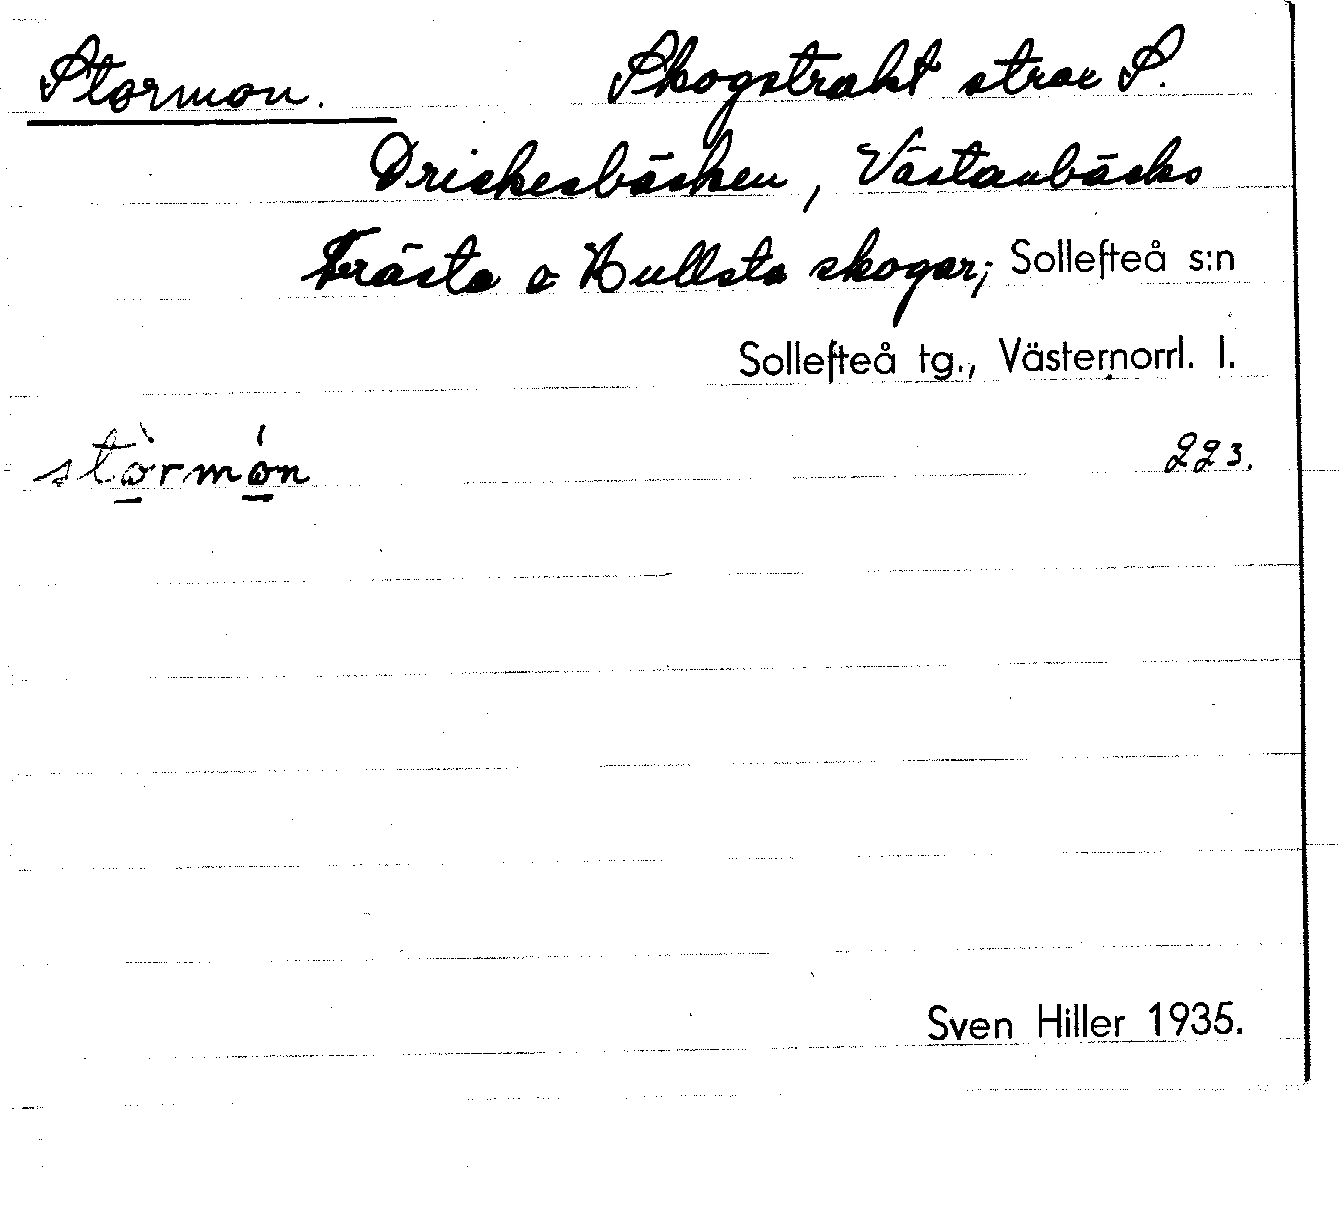 Stormon. Skogstrakt strax S.
Driskesbäcken, Västanbäcks
Trästa o Hullsta skogar; Sollefteå s:n
Sollefteå tg., Västernorrl. l.
stòrmón 223.
Sven Hiller 1935.